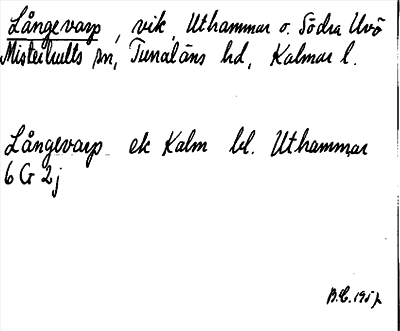 Långevarp, vik, Uthammar o. Södra Uvö
Misterhults sn, Tunaläns hd, Kalmar l.
Långevarp ek Kalm bl. Uthammar
6 G 2j